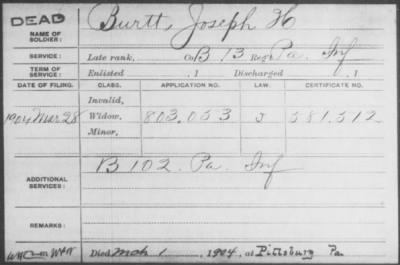 DEAD
NAME OF SOLDIER: Burtt, Joseph H
SERVICE: Late rank, Co B 13 Reg Pa. Inf
TERM OF SERVICE: Enlisted , 1 Discharged , 1
DATE OF FILING. CLASS. APPLICATION NO. LAW. CERTIFICATE NO.
Invalid,
1904 Mar 28 Widow, 803.053 581.512
Minor,
ADDITIONAL SERVICES: B 102 Pa Inf
REMARKS:
Died Mch 1, 1904, at Pittsburg Pa